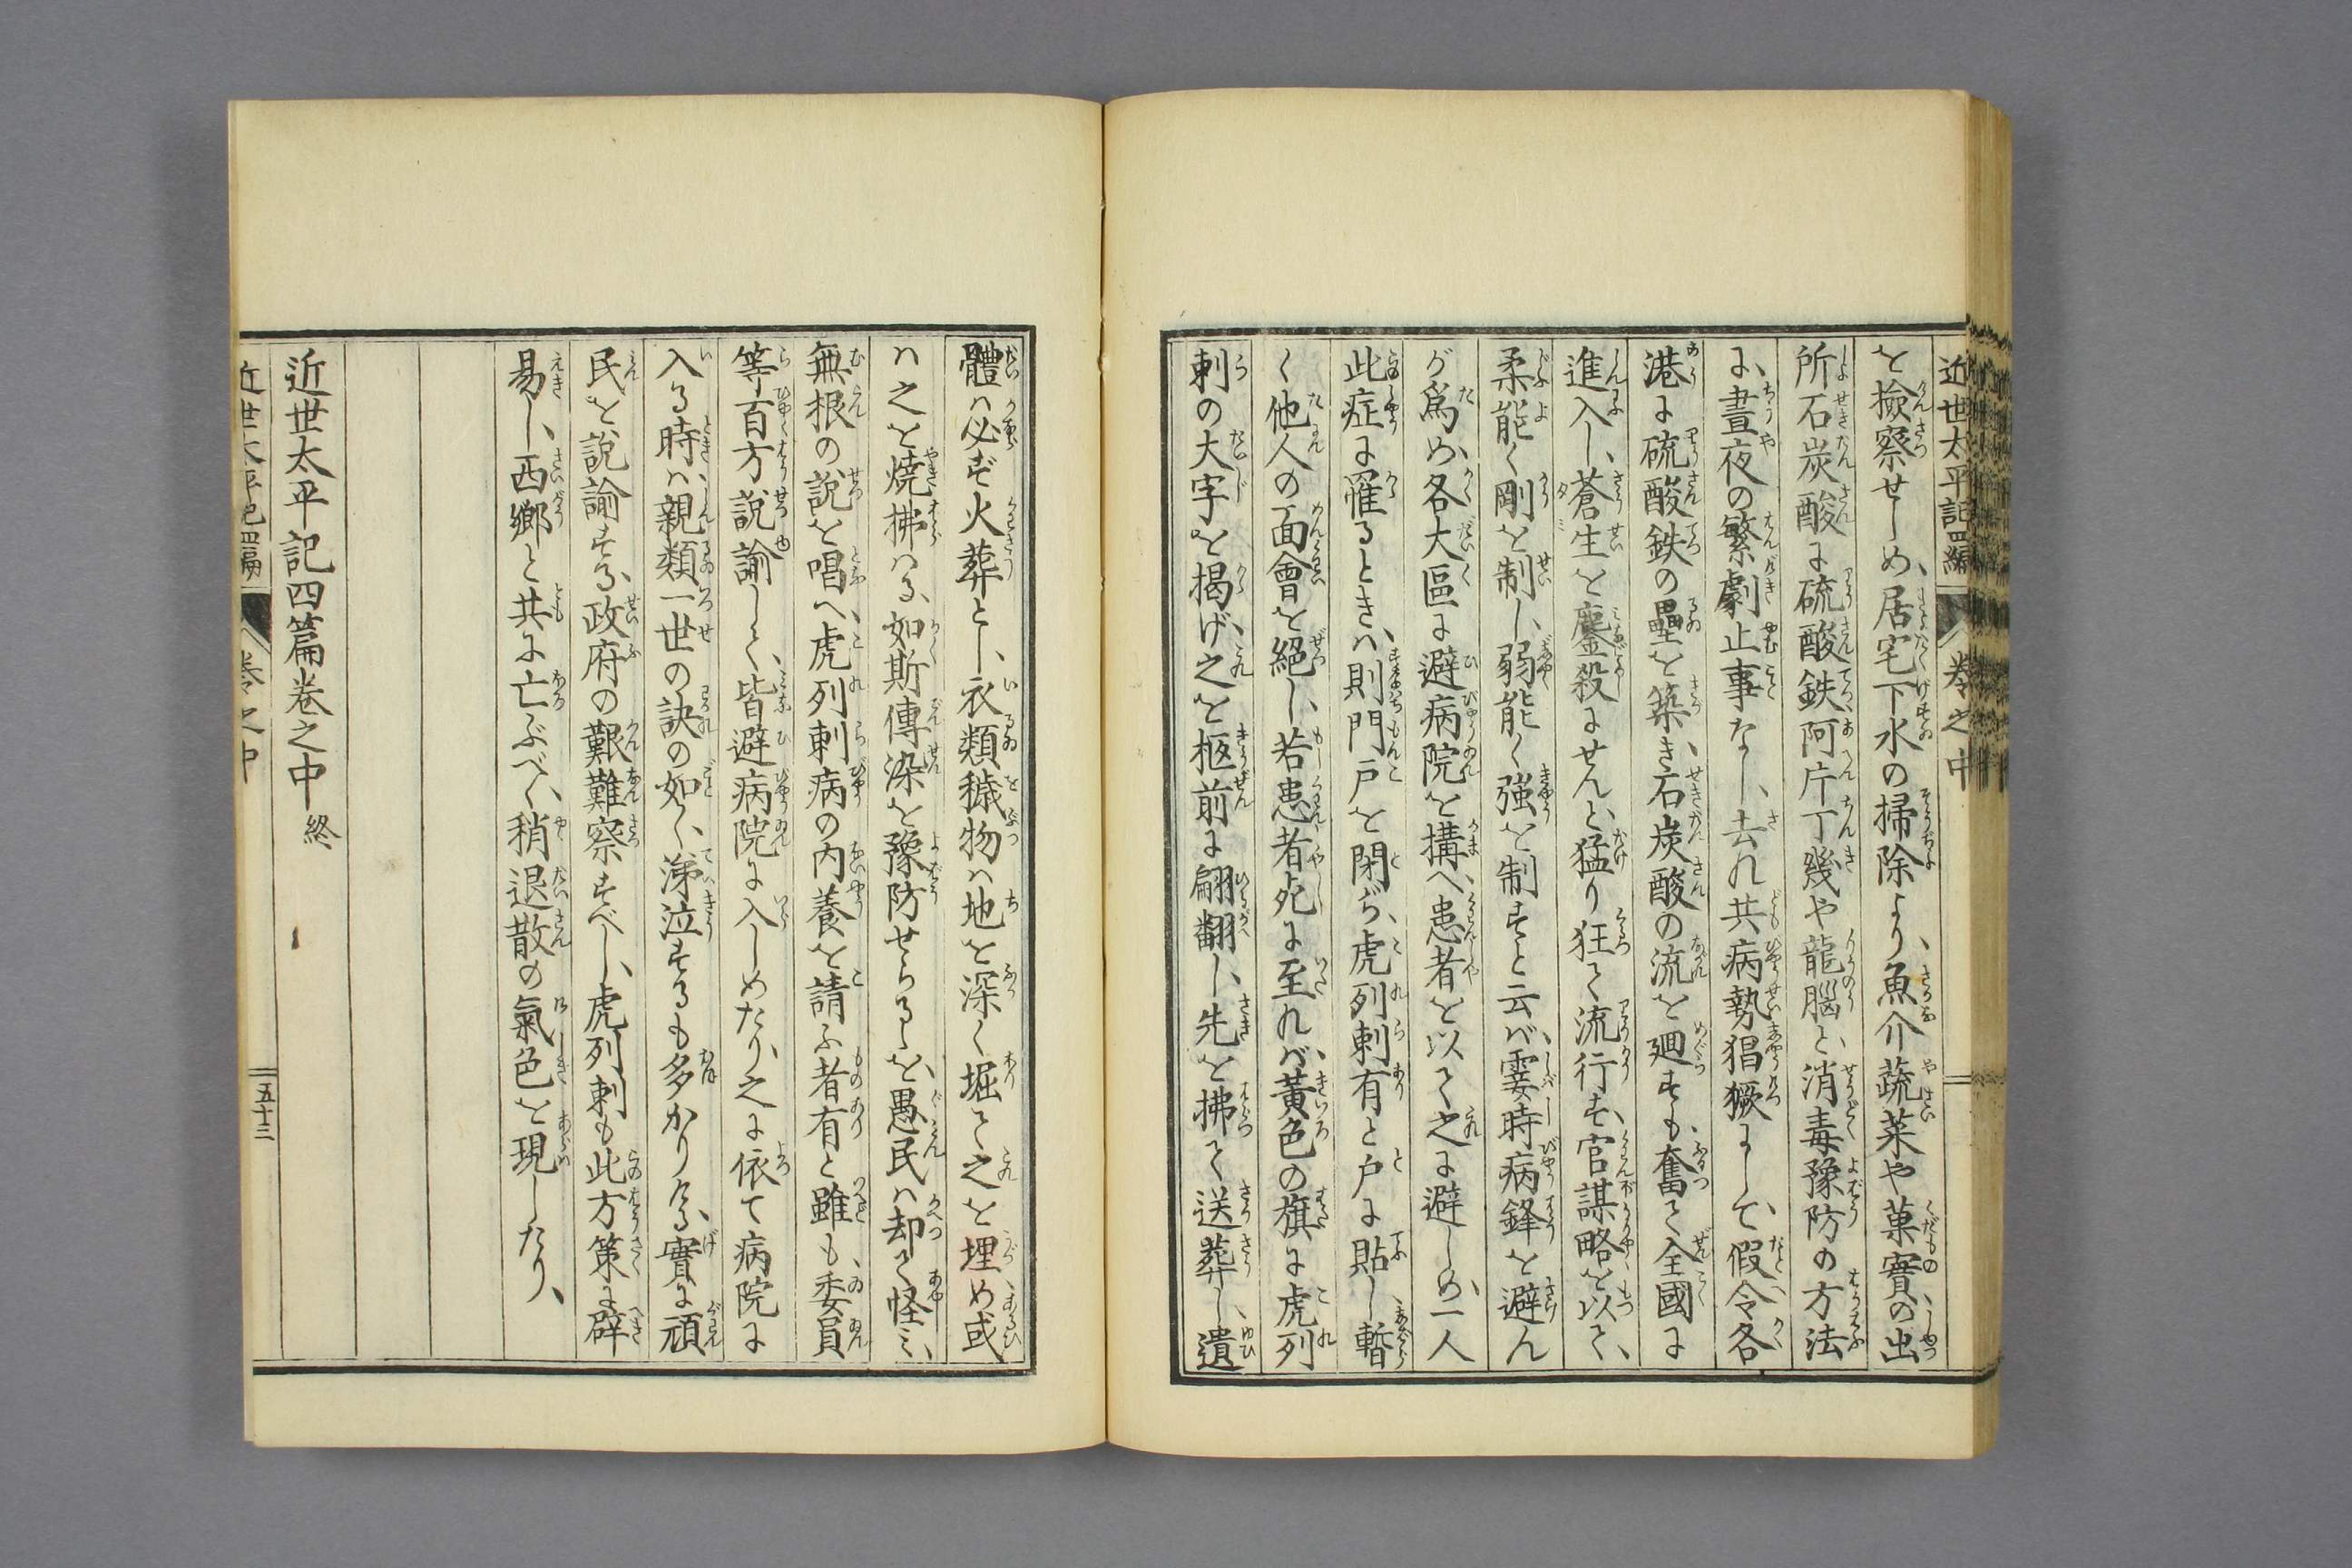 近世太平記四編　卷之中
を撿察せしめ、居宅下水の掃除より、魚介蔬菜や菓實の出
所石炭酸に硫酸鉄、阿片丁幾や龍腦と、消毒豫防の方法
に、晝夜の繁劇止事なし、去れ共病勢猖獗にして、假令各
港に硫酸鉄の壘を築き、石炭酸の流を廻すも、奮て全國に
進入し、蒼生を鏖殺にせんと、猛り狂て流行す、官謀略を以て、
柔能く剛を制し、弱能く強を制すと云ば、霎時病鋒を避ん
が爲め、各大區に避病院を搆へ、患者を以て之に避しめ、一人
此症に罹るときハ、則門戸を閉ぢ、虎列刺有と戸に貼し、暫
く他人の面會を絕し、若患者死に至れバ、黃色の旗に虎列
刺の大字を揭げ、之を柩前に翩翻し、先を拂て送葬し、遺
體ハ必ず火葬とし、衣類穢物ハ地を深く堀て之を埋め、或
ハ之を燒拂ハる、如斯傳染を豫防せらるゝを、愚民ハ却て怪ミ、
無根の說を唱へ、虎列刺病の內養を請ふ者有と雖も、委員
等百方說諭して、皆避病院に入しめたり、之に依て病院に
入る時ハ、親類一世の訣の如く、涕泣するも多かりける、實に頑
民を說諭する、政府の艱難察すべし、虎列刺も此方策に辟
易し、西鄕と共に亡ぶべく、稍退散の氣色を現したり、
近世太平記四篇卷之中　終
近世太平記四編　卷之中　五十三